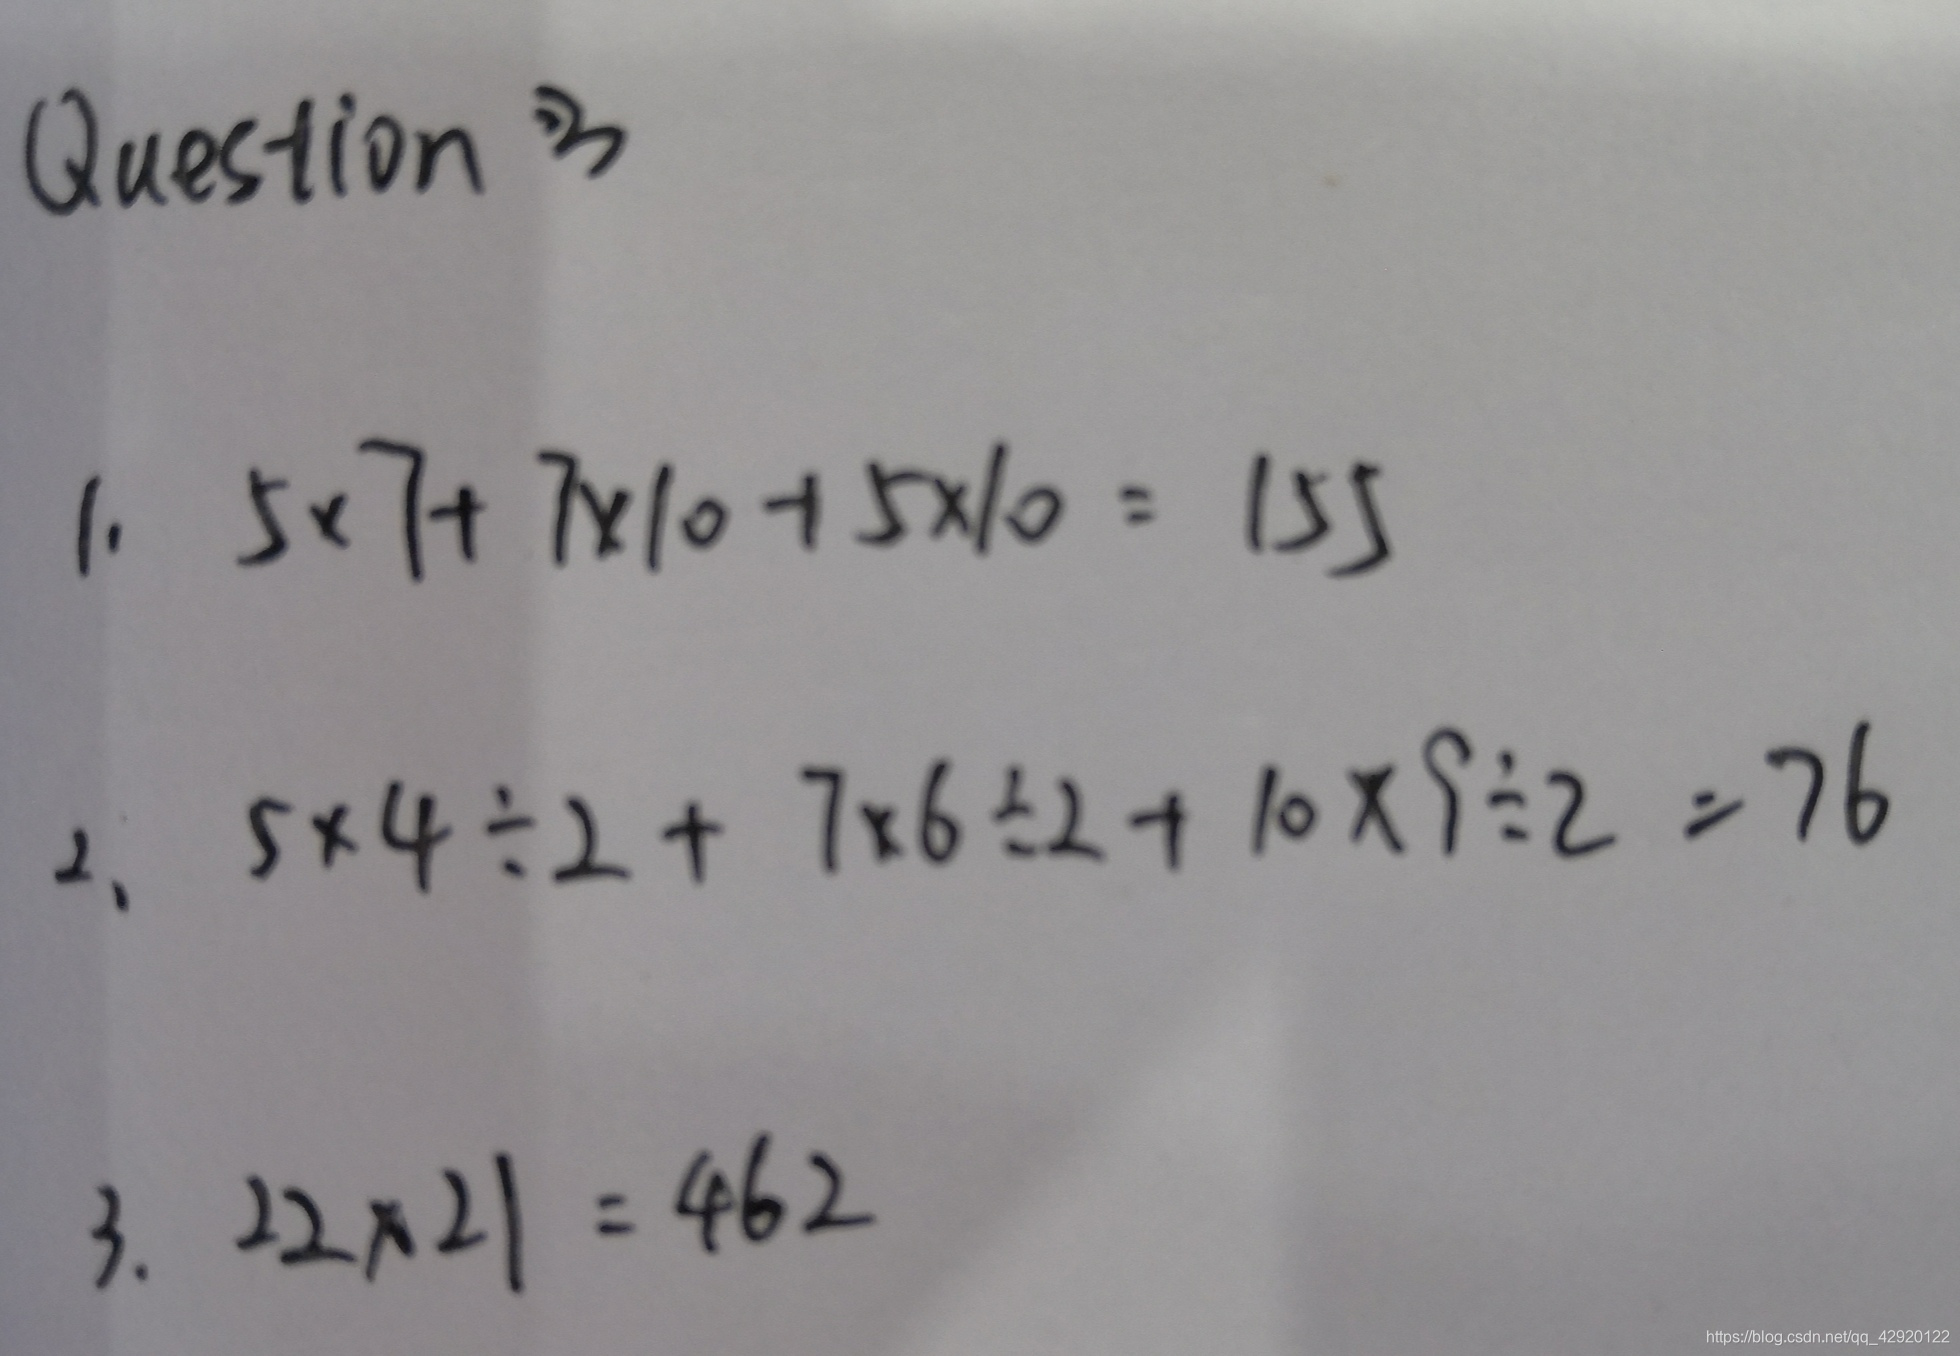 Question 3
1. 5×7+ 7×10+5×10 = 155
2、 5×4÷2 + 7×6÷2+ 10×9÷2 = 76
3. 22×21 = 462
https://blog.csdn.net/qq_42920122